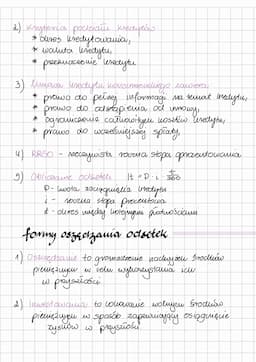 2) Kryteria podziału kredytów
* okres kredytowania,
* waluta kredytu,
* przeznaczenie kredytu
3) Umowa kredytu konsumenckiego zawiera
* prawo do pełnej informacji na temat kredytu,
* prawo do odstąpienia od umowy,
* ograniczenie całkowitych kosztów kredytu,
* prawo do wcześniejszej spłaty,
4) RRSO - rzeczywista roczna stopa oprocentowania
5) Obliczanie odsetek It = P · i · t/360
P - kwota zaciągnięcia kredytu
i - roczna stopa procentowa
t - okres między kolejnymi płatnościami
formy oszczędzania odsetek
1) Oszczędzanie to gromadzenie nadwyżek środków
pieniężnych w celu wykorzystania ich
w przyszłości
2) Inwestowanie to lokowanie wolnych środków
pieniężnych w sposób zapewniający osiągnięcie
zysków w przyszłości